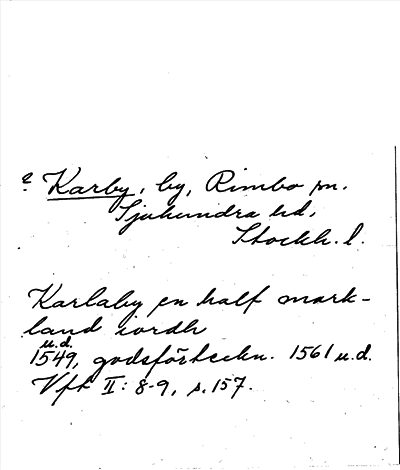 Karby, by, Rimbo sn.
Sjuhundra hd,
Stockh. l.
Karlaby en half mark-
land iordh
u.d.
1549, godsförteckn. 1561 u.d.
Vfr II: 8-9, s. 157.